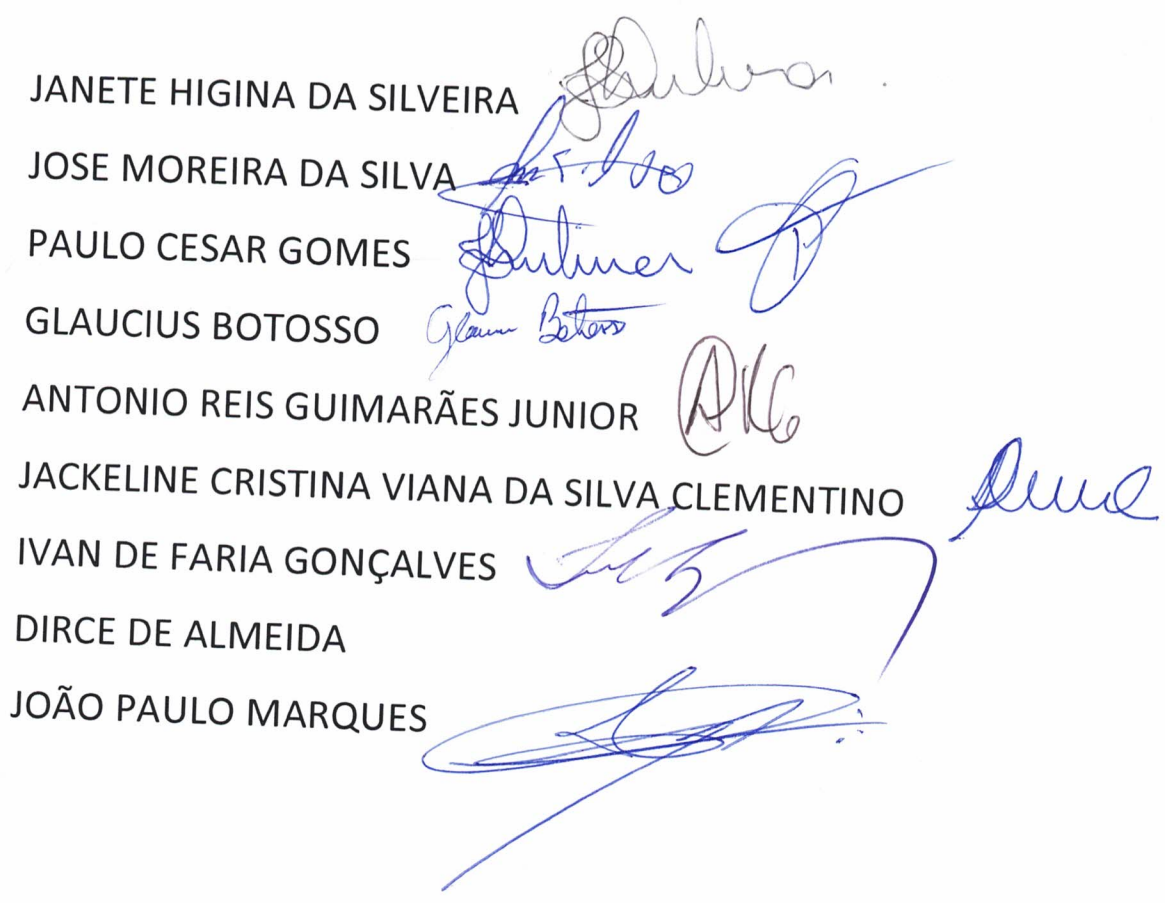 JANETE HIGINA DA SILVEIRA
JOSE MOREIRA DA SILVA
PAULO CESAR GOMES
GLAUCIUS BOTOSSO Botosso
ANTONIO REIS GUIMARÃES JUNIOR
JACKELINE CRISTINA VIANA DA SILVA CLEMENTINO
IVAN DE FARIA GONÇALVES
DIRCE DE ALMEIDA
JOÃO PAULO MARQUES